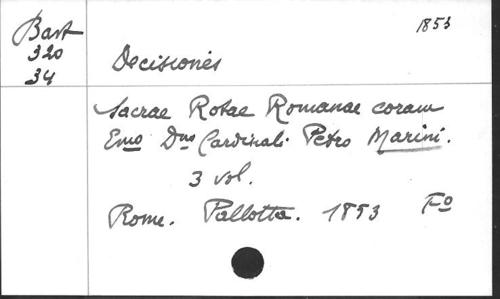 Bart
320
34
1853
Decisiones
Sacrae Rotae Romanae coram
Emo Dno Cardinali Petro Marini.
3 vol.
Rome. Pallotta. 1853 Fo